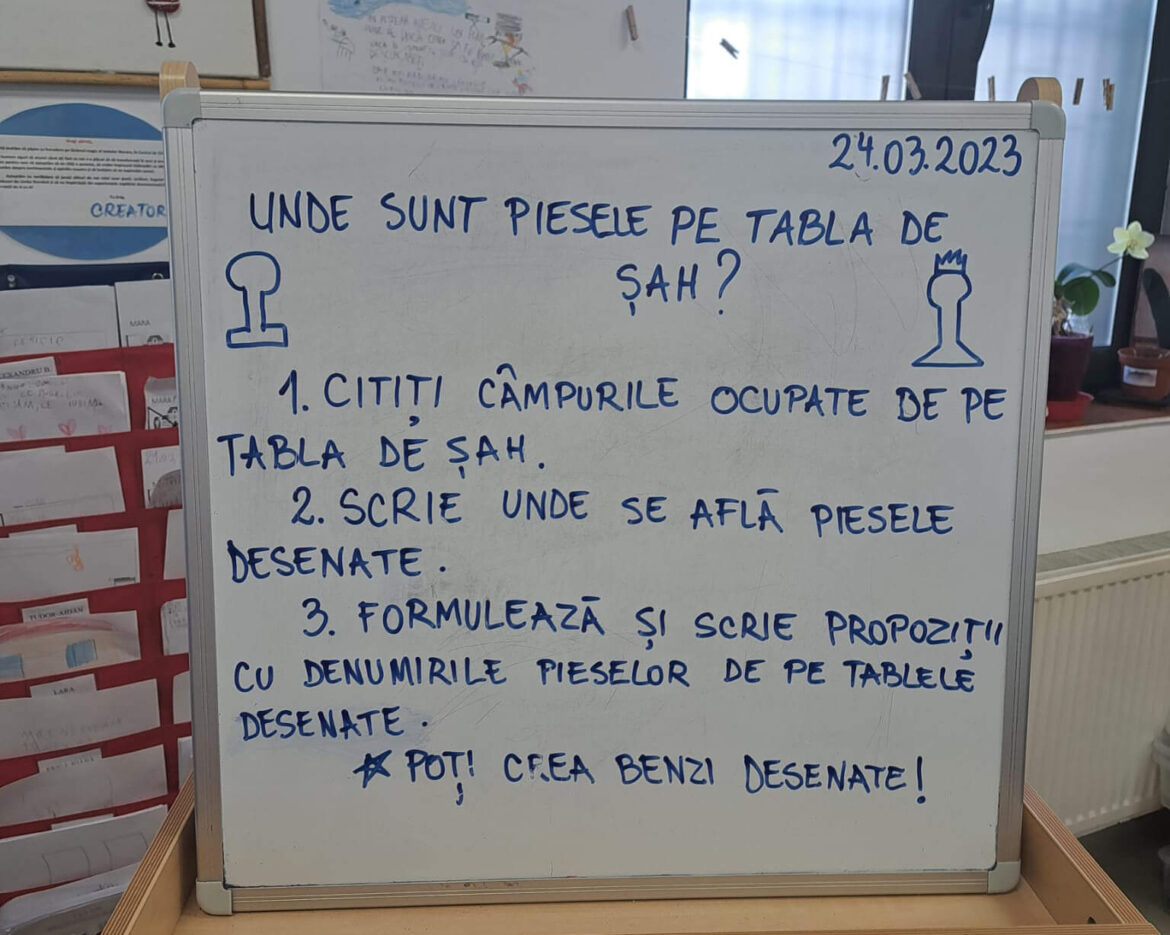 24.03.2023
UNDE SUNT PIESELE PE TABLA DE
ȘAH?
1. CITIȚI CÂMPURILE OCUPATE DE PE
TABLA DE ȘAH.
2. SCRIE UNDE SE AFLĂ PIESELE
DESENATE.
3. FORMULEAZĂ ȘI SCRIE PROPOZIȚII
CU DENUMIRILE PIESELOR DE PE TABLELE
DESENATE.
* POȚI CREA BENZI DESENATE!
CREATOR
MARA
LARA